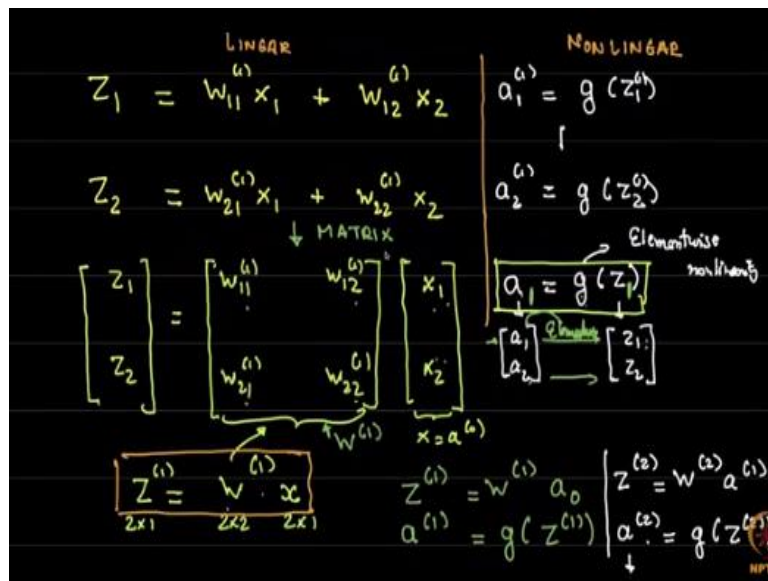 LINEAR
Z₁ = W₁₁⁽¹⁾ x₁ + W₁₂⁽¹⁾ x₂
Z₂ = W₂₁⁽¹⁾ x₁ + W₂₂⁽¹⁾ x₂
↓ MATRIX
[Z₁] = [W₁₁⁽¹⁾ W₁₂⁽¹⁾] [x₁]
[Z₂] [W₂₁⁽¹⁾ W₂₂⁽¹⁾] [x₂]
W⁽¹⁾ x = a⁽⁰⁾
Z⁽¹⁾ = W⁽¹⁾ . x
2x1 2x2 2x1
NONLINEAR
a₁⁽¹⁾ = g (Z₁⁽¹⁾)
a₂⁽¹⁾ = g (Z₂⁽¹⁾)
Elementwise
nonlinearity
a₁ = g (Z₁)
[a₁] → [Z₁]
[a₂] [Z₂]
Z⁽¹⁾ = W⁽¹⁾ a₀
a⁽¹⁾ = g( Z⁽¹⁾)
Z⁽²⁾ = W⁽²⁾ a⁽¹⁾
a⁽²⁾ = g( Z⁽²⁾
NPT